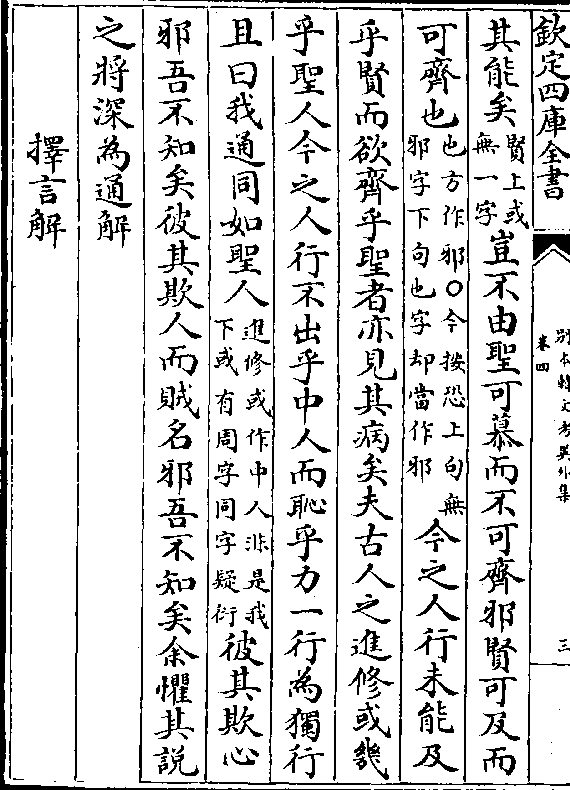 欽定四庫全書
別本韓文考異外集
卷四
三
其能矣賢上或無一字豈不由聖可慕而不可齊邪賢可及而
可齊也也方作邪〇今按恐上句無邪字下句也字却當作邪今之人行未能及
乎賢而欲齊乎聖者亦見其病矣夫古人之進修或幾
乎聖人今之人行不出乎中人而恥乎力一行為獨行
且曰我通同如聖人進修或作中人非是我下或有周字同字疑衍彼其欺心
邪吾不知矣彼其欺人而賊名邪吾不知矣余懼其說
之將深為通解
擇言解